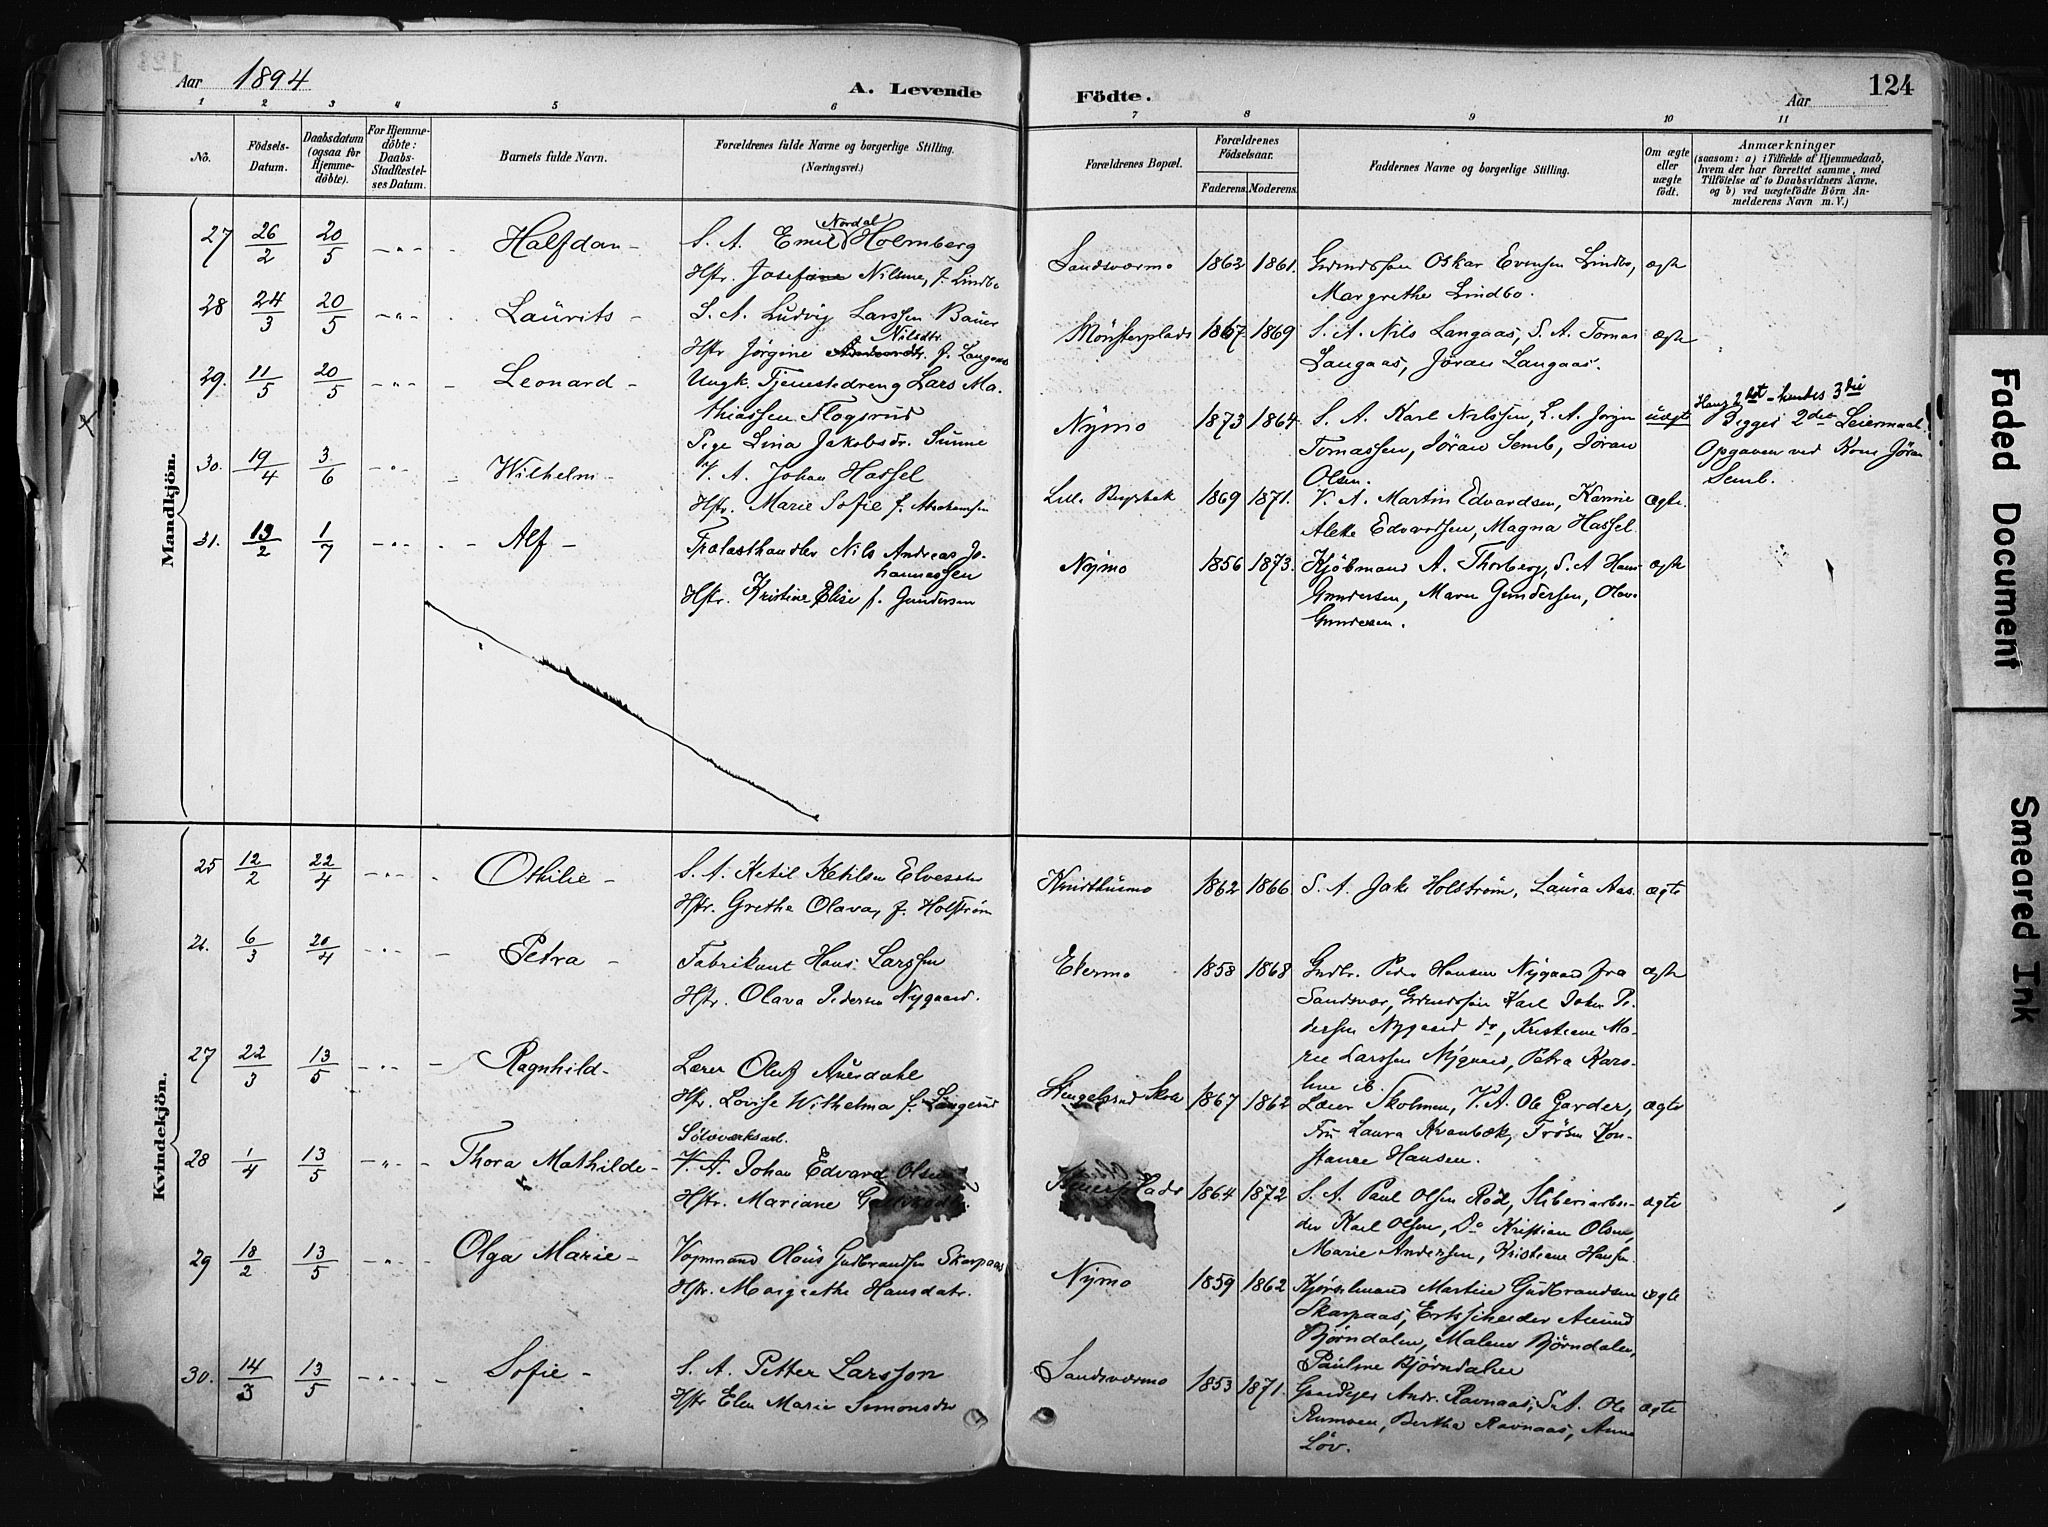 Aar 1894
A. Levende
Födte.
Aar
124
1 2 3 4 5 6 7 8 9 10 11
No.
Födsels-
Datum.
Daabsdatum
(ogsaa for
Hjemme-
döbte).
For Hjemme-
döbte:
Daabs-
Stadfæstel-
ses Datum.
Barnets fulde Navn.
Forældrenes fulde Navne og borgerlige Stilling.
(Næringsvei.)
Forældrenes Bopæl.
Forældrenes
Födselsaar.
Faderens. Moderens.
Faddernes Navne og borgerlige Stilling.
Om ægte
eller
uægte
födt.
Anmærkninger
(saasom: a) i Tilfælde af Hjemmedaab,
hvem der har forrettet samme, med
Tilföielse af to Daabsvidners Navne,
og b) ved uægtefödte Börn An-
melderens Navn m. V.)
Mandkjön.
27 26/2 20/5 Halfdan
S. A. Emil Nordal Holmberg
Hstr. Josefane Nilsine, f. Lindbo
Sandsværmo 1862 1861.
Grundssøn Oskar Evensen Lindbo,
Margrethe Lindbo.
ægte
28 24/3 20/5 Laurits
S. A. Ludvig Larssen Bauer
Hstr. Jørgine Nilsdtr. f. Langaas
Mønsterplads 1867 1869
S. A. Nils Langaas, S. A. Tomas
Langaas, Jöran Langaas.
ægte
29. 11/5 20/5 Leonard
Ungk. Tjenestedreng Lars Ma-
thiassen Flogsrud
Pige Lina Jakobsdr. Sunne
Nymo 1873 1864.
S. A. Karl Nilssen, S. A. Jørgen
Tomassen, Jöran Semb, Jöran
Olsen.
uægte
Hans 2det - hendes 3die
Begges 2det Leiermaal.
Opgaven ved Kone Jöran
Semb.
30. 19/4 3/6 Wilhelm
V. A. Johan Hassel
Hstr. Marie Sofie f. Abrahamsen
Lille 1869 1871.
V. A. Martin Edvardsen, Karnie
Alette Edvardsen, Magna Hassel
ægte.
31. 13/2 1/7 Alf
Trælasthandler Nils Andreas Jo-
hannessen
Hstr. Kristine Elise f. Gundersen
Nymo 1856 1873.
Kjöbmand A. Thorberg, S. A. Hans
Gundersen, Maren Gundersen, Olava
Gundersen.
ægte
Kvindekjön.
25 12/2 22/4 Othilie
S. A. Ketil Ketilsen
Hstr. Grethe Olava, f. Holstrøm
Knuthusmo 1862 1866
S. A. Jak. Holstrøm, Laura Aas.
ægte
26. 6/3 20/4 Petra
Fabrikant Hans Larssen
Hstr. Olava Pedersen Nygaard.
Etermo 1858 1868
Grdbr. Peder Hansen Nygaard fra
Sandsvær, Grundssøn Karl Johan Pe-
dersen Nygaard do, Kristiane Ma-
rie Larssen Nygaard, Petra Kars-
ægte
27 22/3 13/5 Ragnhild
Lærer Oluf Auerdahl
Hstr. Lovise Wilhelma f. Langerud
Hengelsrud Skole 1867 1862
Lærer Skolmen, V. A. Ole Garder,
Fru Laura Kranbæk, Frøken Kon-
stance Hansen.
ægte
28 1/4 13/5 Thora Mathilde
Sølvværksarb.
V. A. Johan Edvard Olsen
Hstr. Mariane
1864 1872
S. A. Paul Olsen Rød, Sliberiarbei-
der Karl Olsen, Do Kristian Olsen,
Marie Andersen, Kristiane Hansen
ægte
29 18/2 13/5 Olga Marie
Vognmand Olaus Gudbrandsen Skarpaas
Hstr. Margrethe Hansdatr.
Nymo 1859 1862
Kjørselmand Martin Gudbrandsen
Skarpaas, Ertsscheider Amund
Bjørndalen, Malene Bjørndalen,
Pauline Bjørndalen
ægte
30. 14/3 13/5 Sofie
S. A. Petter Larsson
Hstr Elen Marie Simonsdr
Sandsværmo 1853 1871.
Gaardejer Andr. Ravnaas, S. A. Ole
Rumoen, Berthe Ravnaas, Anne
Löv.
ægte
Faded Document
Smeared Ink